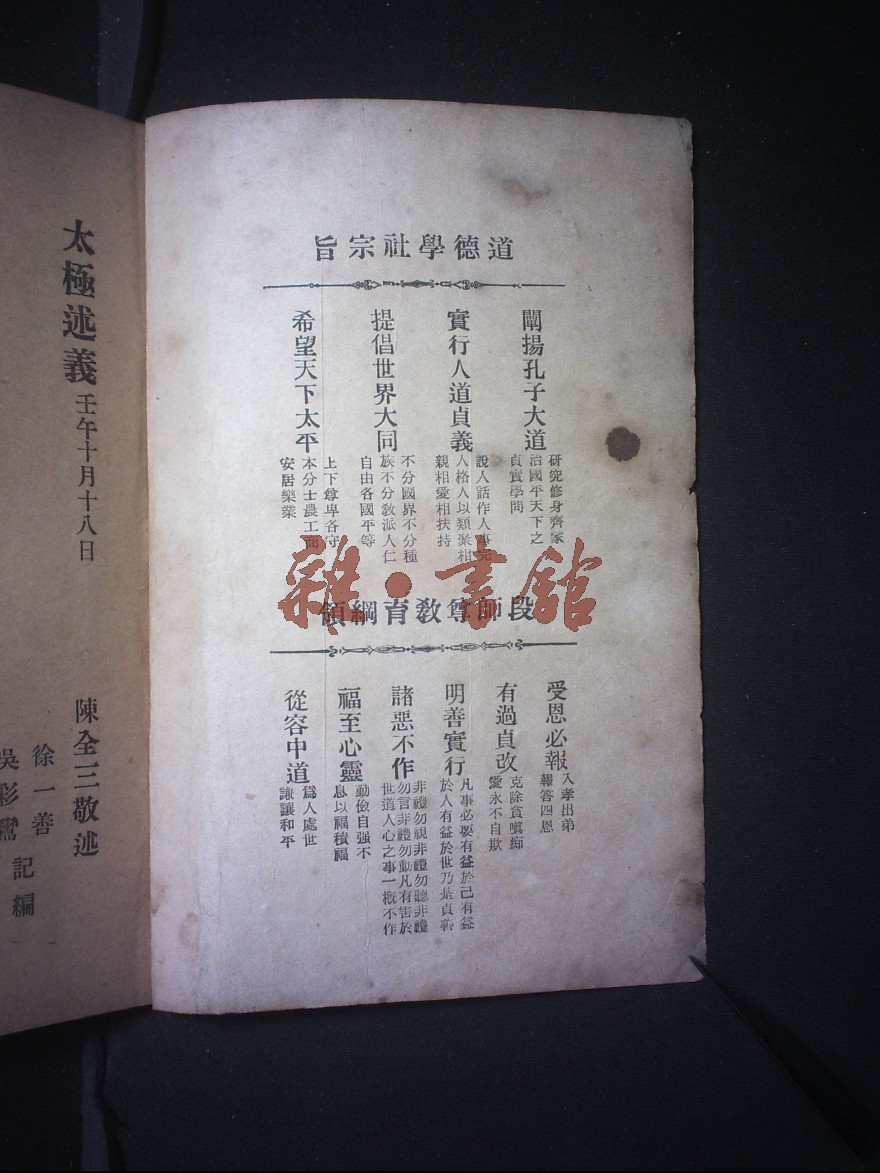 道德學社宗旨
闡揚孔子大道
研究修身齊家
治國平天下之
貞實學問
實行人道貞義
說人話作人事完
人格人以類聚相
親相愛相扶持
提倡世界大同
不分國界不分種
族不分教派人仁
自由各國平等
希望天下太平
上下尊卑各守
本分士農工商
安居樂業
段師尊教育綱領
受恩必報
入孝出弟
報答四恩
有過貞改
克除貪嗔痴
愛永不自欺
明善實行
凡事必要有益於己有益
於人有益於世乃是貞善
諸惡不作
非禮勿視非禮勿聽非禮
勿言非禮勿動凡有害於
世道人心之事一概不作
福至心靈
勤儉自强不
息以福積福
從容中道
為人處世
謙讓和平
太極述義 壬午十月十八日
陳全三敬述
徐一善
吳彩鸞
記編
雜·書館